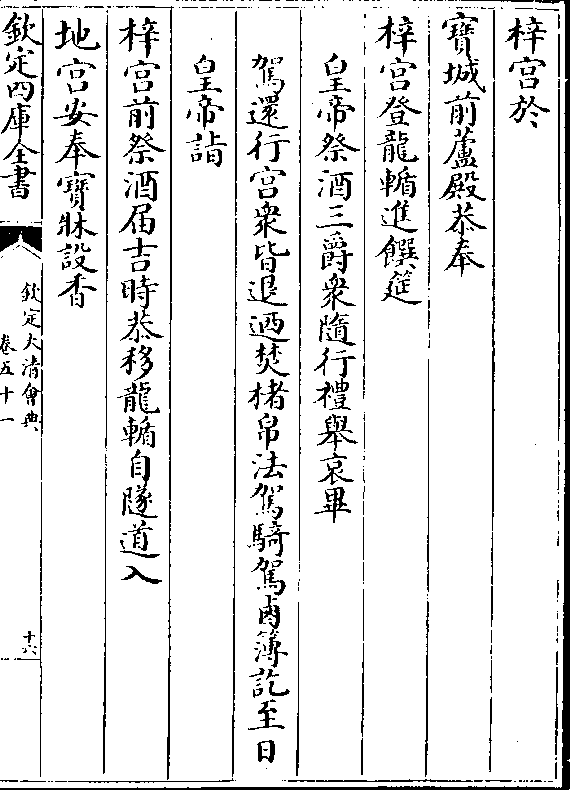 梓宮於
寶城前蘆殿恭奉
梓宮登龍輴進饌筵
皇帝祭酒三爵衆隨行禮舉哀畢
駕還行宮衆皆退迺焚楮帛法駕騎駕鹵簿訖至日
皇帝詣
梓宮前祭酒届吉時恭移龍輴自隧道入
地宮安奉寶牀設香
欽定四庫全書
欽定大清會典
卷五十一
十六